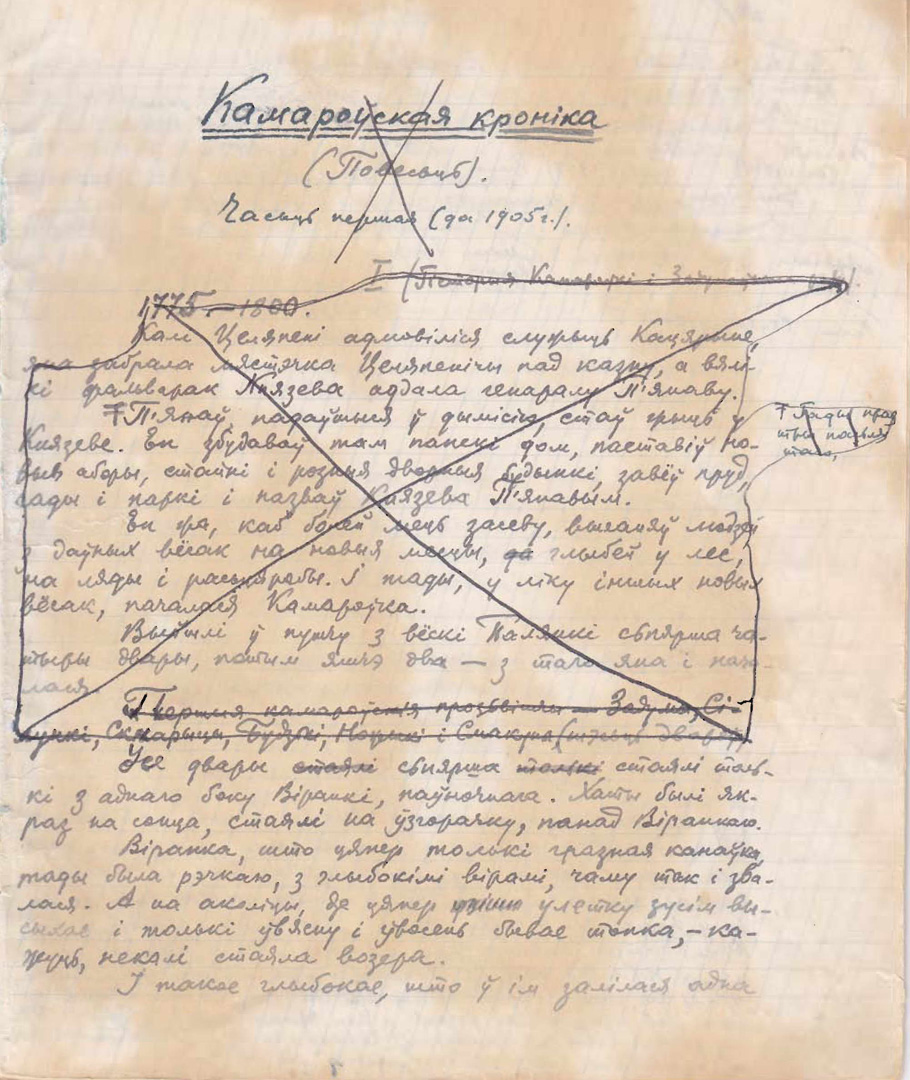 Камароўская кроніка
(Повесьць).
Часьць першая (да 1905 г.).
I (Гісторыя Камароўкі і
1775 – 1800.
Калі Целяпені адмовіліся служыць Кацярыне,
яна забрала мястэчка Целяпенічы пад казну, а вялі-
кі фальварак Князева аддала генаралу П'янаву.
П'янаў падаўшыся ў дымісію, стаў жыць у
Князеве. Ён збудаваў там панскі дом, паставіў но-
выя аборы, стайні і розныя дворныя будынкі, завёў пруд,
сады і паркі і назваў Князева П'янавым.
Ён жа, каб болей мець засеву, выганяў людзей
з даўных вёсак на новыя месцы, да глыбей у лес,
на ляды і расьцяробы. І тады, у ліку іншых новых
вёсак, пачалася Камароўка.
Выйшлі ў пушчу з вёскі Палянкі сьпярша ча-
тыры двары, потым яшчэ два — з таго яна і пача-
лася.
Першыя камароўскія прозьвішчы — Задума, Сі-
Скакуны (шэсьць двароў)
Усе двары стаялі сьпярша толькі стаялі толь-
кі з аднаго боку Віранкі, паўночнага. Хаты былі як-
раз на сонца, стаялі на ўзгорачку, понад Віранкаю.
Віранка, што цяпер толькі гразная канаўка,
тады была рэчкаю, з глыбокімі вірамі, чаму так і зва-
лася. А на аколіцы, дзе цяпер улетку зусім вы-
сыхае і толькі ўвясну і ўвосень бывае топка, – ка-
жуць, некалі стаяла возера.
І такое глыбокае, што ў ім залілася адна
Тады
пасьля
таго,